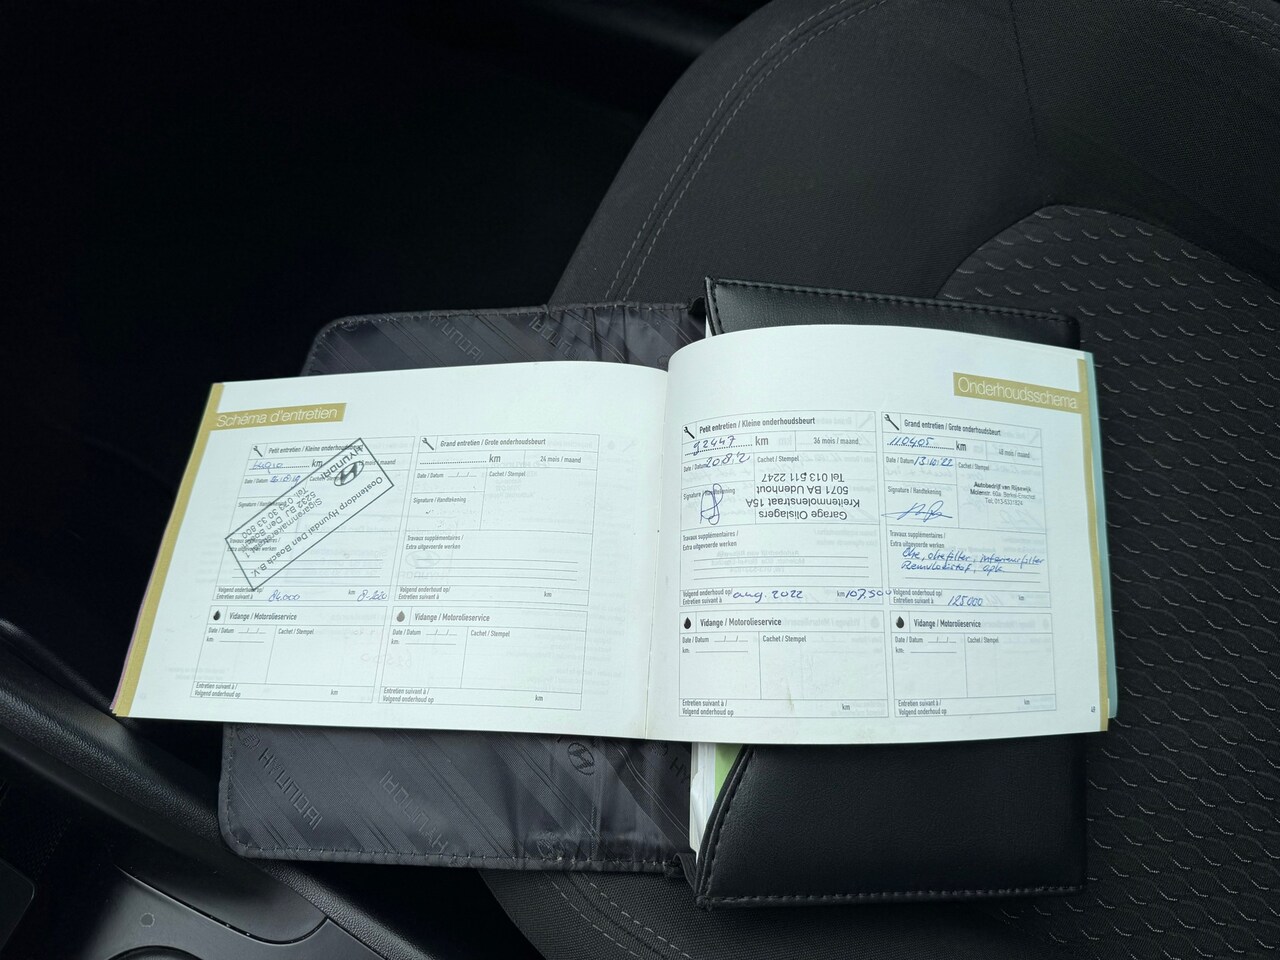 Schéma d'entretien
Petit entretien / Kleine onderhoudsbeurt
km
mois / maand
Date / Datum
Cachet / Stempel
Signature / Handtekening
HYUNDAI
Oostendorp Hyundai Den Bosch B.V.
5232 BJ Den Bosch
Travaux supplémentaires /
Extra uitgevoerde werken
Volgend onderhoud op/
Entretien suivant à
84.000 km
Vidange / Motorolieservice
Date / Datum / /
Cachet / Stempel
km:
Entretien suivant à /
Volgend onderhoud op km
Grand entretien / Grote onderhoudsbeurt
km 24 mois / maand
Date / Datum / / Cachet / Stempel
Signature / Handtekening
Travaux supplémentaires /
Extra uitgevoerde werken
Volgend onderhoud op/
Entretien suivant à km
Vidange / Motorolieservice
Date / Datum / /
Cachet / Stempel
km:
Entretien suivant à /
Volgend onderhoud op km
Onderhoudsschema
Petit entretien / Kleine onderhoudsbeurt
92447 km 36 mois / maand
Date / Datum Cachet / Stempel
Signature / Handtekening
Garage Olislagers
Kreitenmolenstraat 15A
5071 BA Udenhout
Tel 013 511 2247
Travaux supplémentaires /
Extra uitgevoerde werken
Volgend onderhoud op/
Entretien suivant à aug. 2022 km 107,500
Vidange / Motorolieservice
Date / Datum / /
Cachet / Stempel
km:
Entretien suivant à /
Volgend onderhoud op km
Grand entretien / Grote onderhoudsbeurt
110405 km 48 mois / maand
Date / Datum 13.10.22 Cachet / Stempel
Signature / Handtekening
Autobedrijf van Rijswijk
Molenstr. 60a Berkel-Enschot
Travaux supplémentaires /
Extra uitgevoerde werken
Olie, oliefilter, interieurfilter
Remvloeistof, apk
Volgend onderhoud op/
Entretien suivant à 125000 km
Vidange / Motorolieservice
Date / Datum / /
Cachet / Stempel
km:
Entretien suivant à /
Volgend onderhoud op km
HYUNDAI
HYUNDAI
HYUNDAI